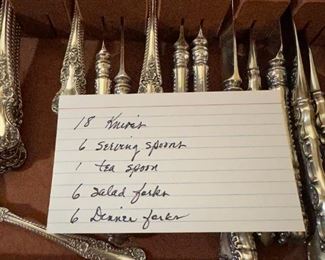 18 Knives
6 serving spoons
1 tea spoon
6 salad forks
6 Dinner forks